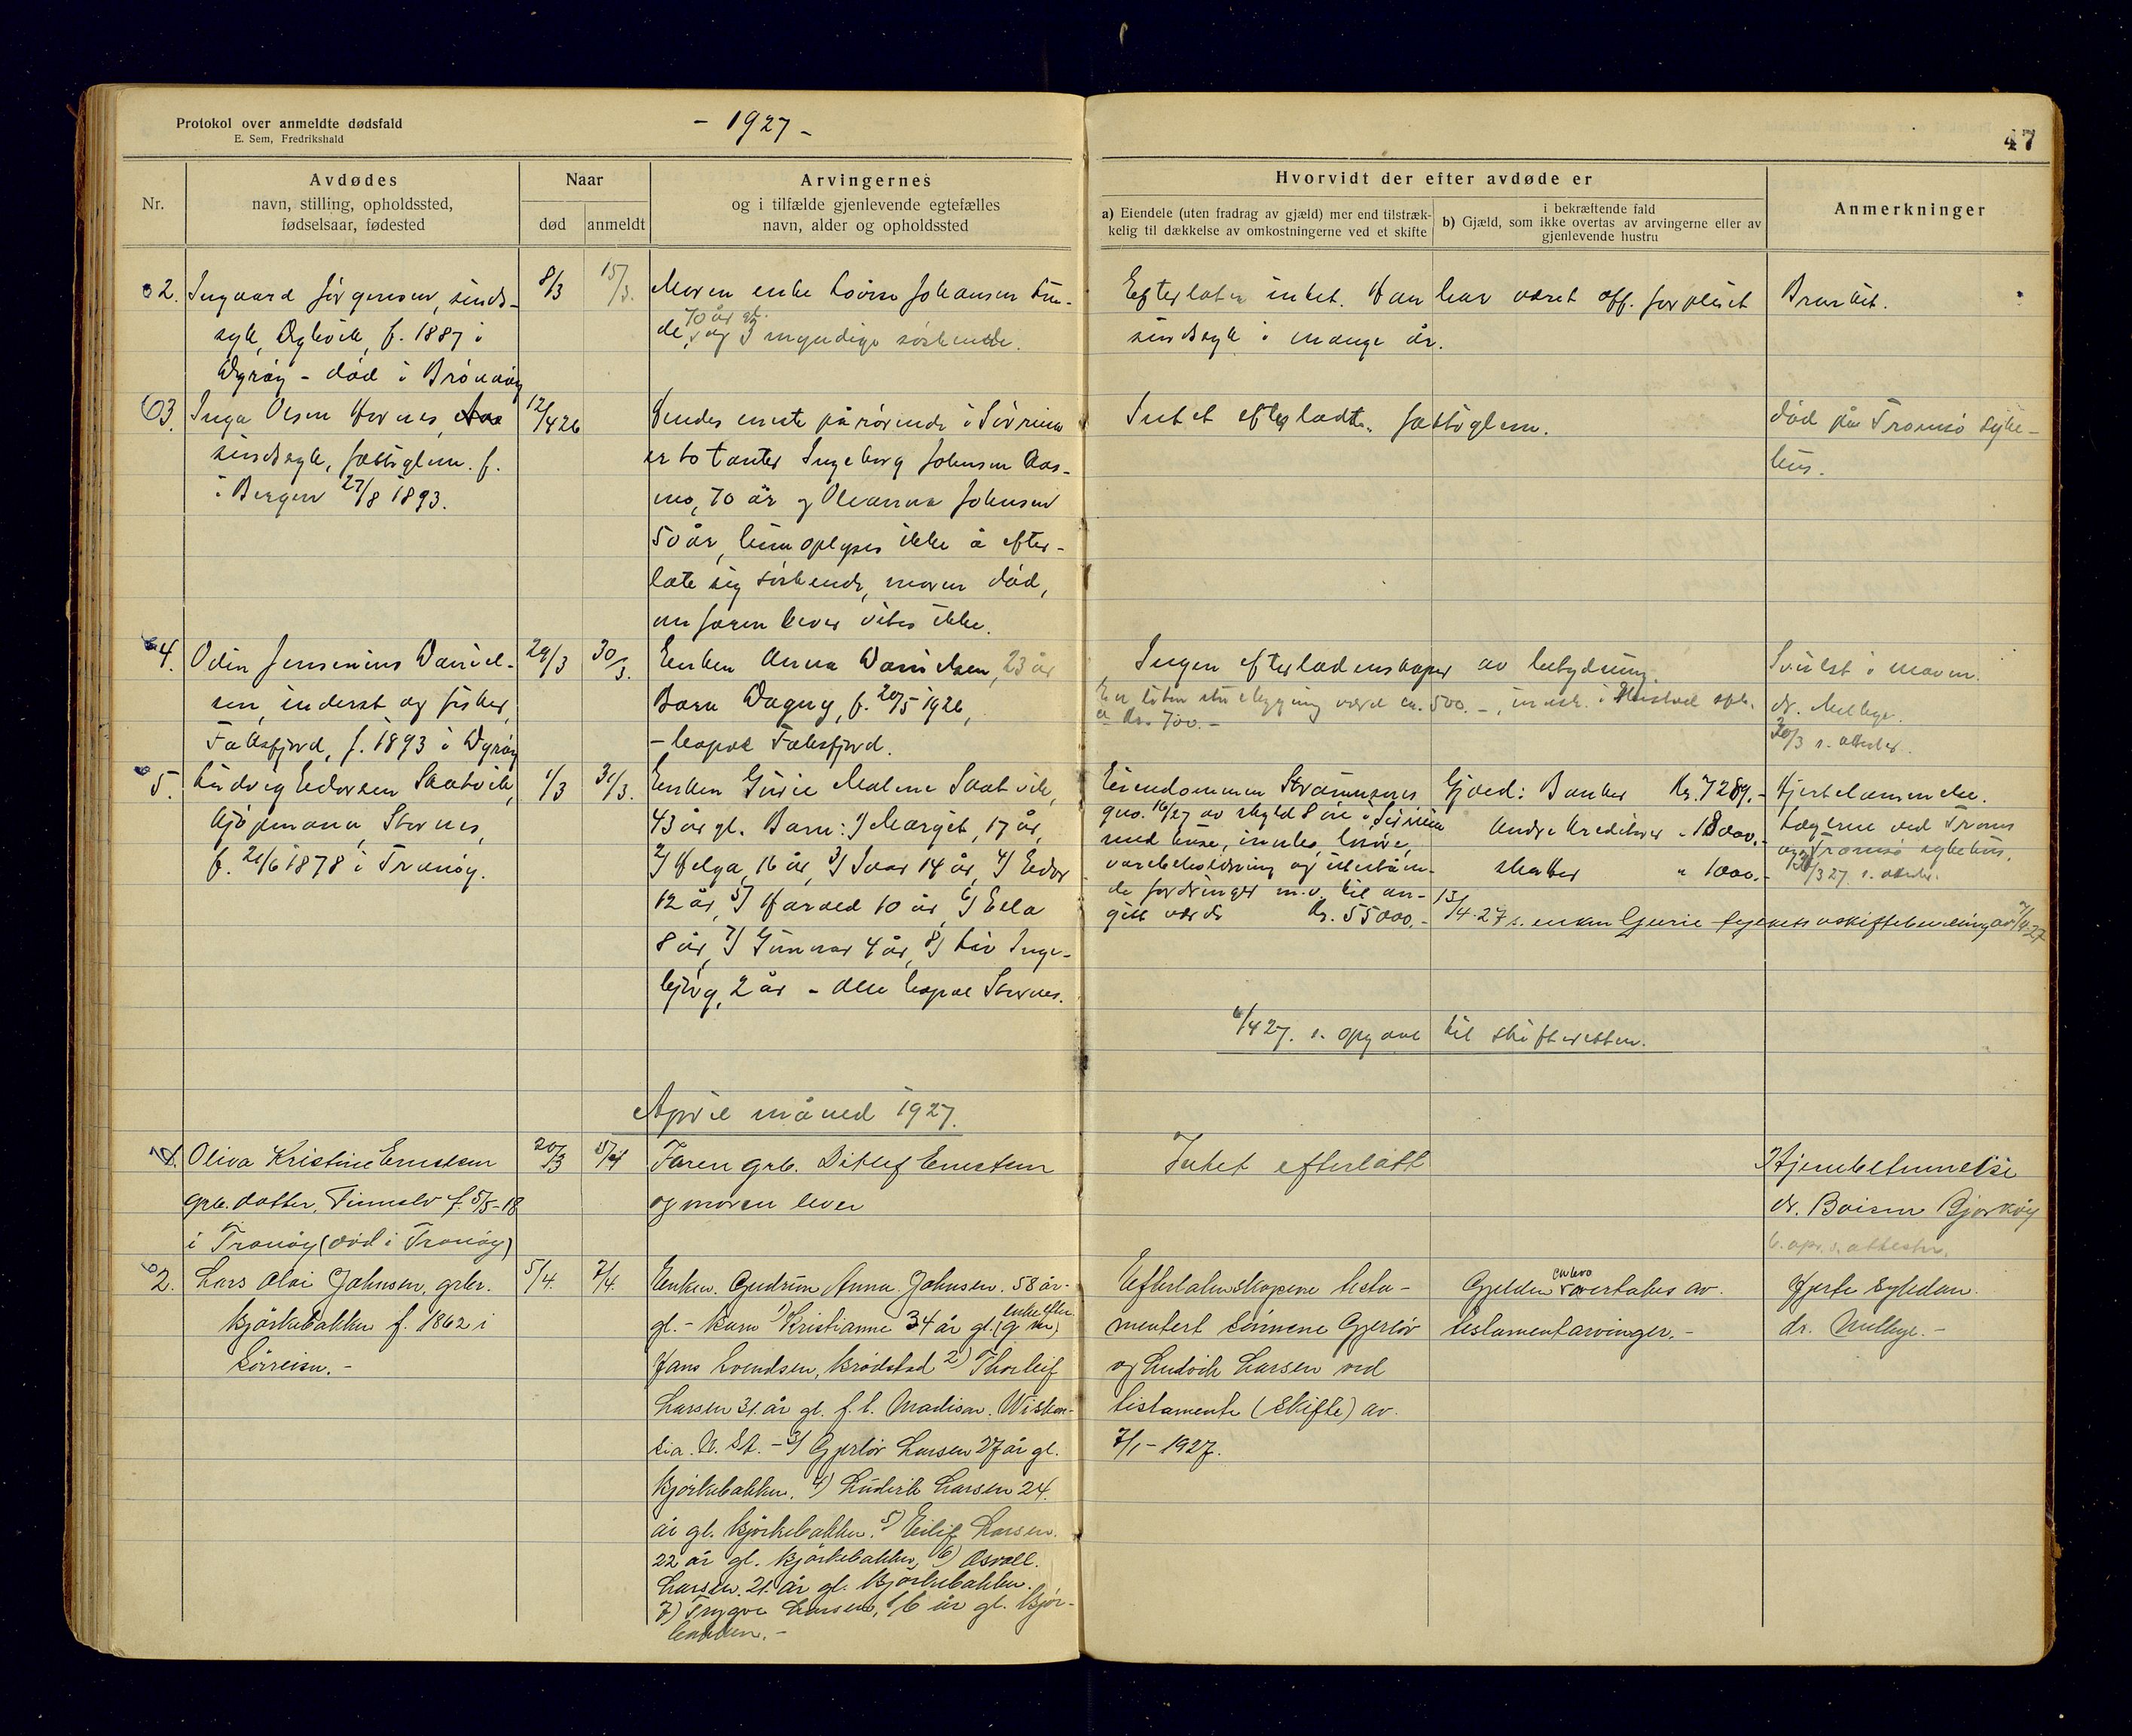 Protokol over anmeldte dødsfald
E. Sem, Fredrikshald
- 1927 -
47
Nr.
Avdødes
navn, stilling, opholdssted,
fødselsaar, fødested
Naar
død
anmeldt
Arvingernes
og i tilfælde gjenlevende egtefælles
navn, alder og opholdssted
Hvorvidt der efter avdøde er
a) Eiendele (uten fradrag av gjæld) mer end tilstræk-
kelig til dækkelse av omkostningerne ved et skifte
i bekræftende fald
b) Gjæld, som ikke overtas av arvingerne eller av
gjenlevende hustru
Anmerkninger
2.
Ingvard Jørgensen, sinds-
syk, f. 1887 i
Dyrøy - død i Brönnöy
8/3
15/3.
Moren enke Johansen
70 år gl.
de, og 3 myndige søskende.
Efterlater intet. Han har været off. forpleiet
sindssyk i mange år.
3.
Inga Olsen
sindssyk, fattiglem. f.
i Bergen 27/8 1893.
12/4 26
Hendes neste pårørende i Sørreisa
er to tanter Ingeborg Johnsen Aas-
mo, 70 år og Oleanna Johnsen
50 år, hun oplyses ikke å efter-
late sig søskende, moren død,
om faren lever vites ikke.
Intet efterladt. fattiglem.
død på Tromsö syke-
hus.
4.
Odin Jensenius Daniel-
sen, inderst og fisker,
f. 1893 i Dyröy
29/3
30/3.
Enken Anna Danielsen, 23 år
Barn Dagny, f. 20/5 1926,
Ingen efterladenskaper av betydning.
Svulst i maven.
dr. Melbye.
30/3 s. attester.
5.
Ludvig Skatvik,
kjöpmann, Stornes,
f. 21/6 1878 i Tranöy.
1/3
31/3.
Enken Gurie Malene Skatvik,
43 år gl. Barn: 1/ Margit, 17 år,
2/ Helga, 16 år, 3/ Ivar 14 år, 4/
12 år, 5/ Harald 10 år, 6/ Ella
8 år, 7/ Gunnar 4 år, 8/ Liv Inge-
björg, 2 år - alle bopæl Stornes.
Eiendommen
gno. 16/27 av skyld 8 öre i Sörreisa
med huse, innbo, löröre,
varebeholdning og utestäen-
de fordringer m.v. til an-
gitt værdi Kr. 55000.-
Gjæld: Banker Kr. 7289.-
Andre kreditorer " 18000.-
skatter " 1000.-
Hjertelammelse.
Lægerne ved Troms
og Tromsö sykehus.
13/4-27 s. enken Gurie av 7/4-27
6/4 27. s. opgave til skifteretten.
April måned 1927.
1.
Oliva Kristine Ernstsen
grb. datter, Finnselv f. 5/5-18
i Tranöy (död i Tranöy)
20/3
Faren grb. Ditlef Ernstsen
og moren lever
Intet efterlatt
Hjernebetennelse
dr. Boisen Bjarköy
6. apr. s. attester.
2.
Lars Olai Johnsen, grbr.
Bjørkebakken f. 1862 i
Sörreisa. -
5/4.
7/4.
Enken. Gudrun Anna Johnsen. 58 år.
gl. - Barn 1) Kristianne 34 år gl. (enke efter
Hans Svendsen, Brödstad 2) Thorleif
Larsen 31 år gl. f. t. Madison. Wiskon-
sia. U. St. - 3) Gjerlöv Larsen 27 år gl.
Bjørkebakken. 4) Ludvik Larsen 24.
år gl. Bjørkebakken. 5) Eilif Larsen.
22 år gl. Bjørkebakken, 6) Osvall.
Larsen. 21. år gl. Bjørkebakken.
7) Trygve Larsen, 16 år gl. Bjør-
kebakken. -
Efterlatenskapene testa-
mentert sönnene Gjerlöv
og Ludvik Larsen ved
testamente (skifte) av.
7/1 - 1927.
Gjelden overtakes av.
testamentarvinger. -
Hjerte sykdom.
dr. Melbye. -